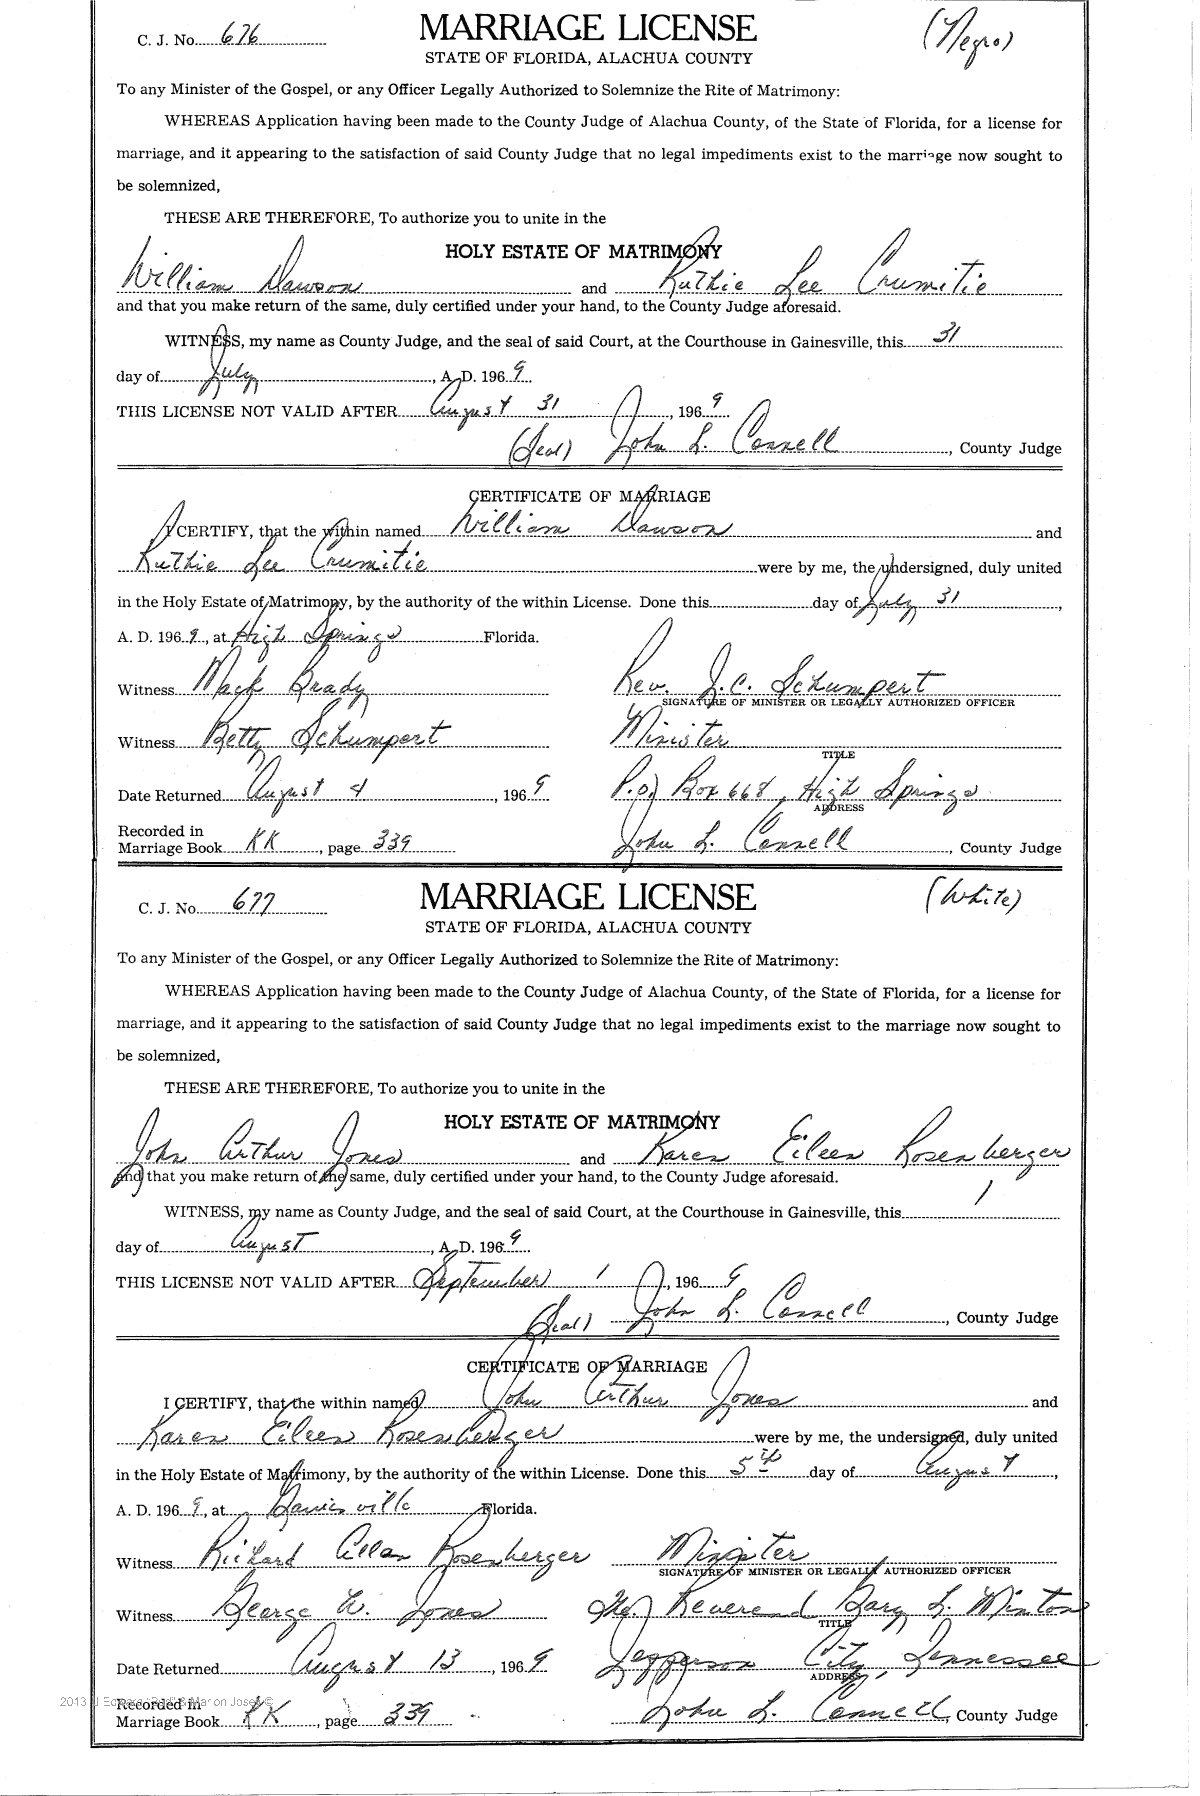 C. J. No. 676 MARRIAGE LICENSE (Negro)
STATE OF FLORIDA, ALACHUA COUNTY
To any Minister of the Gospel, or any Officer Legally Authorized to Solemnize the Rite of Matrimony:
WHEREAS Application having been made to the County Judge of Alachua County, of the State of Florida, for a license for
marriage, and it appearing to the satisfaction of said County Judge that no legal impediments exist to the marriage now sought to
be solemnized,
THESE ARE THEREFORE, To authorize you to unite in the
HOLY ESTATE OF MATRIMONY
William Dawson and Ruthie Lee Crumitie
and that you make return of the same, duly certified under your hand, to the County Judge aforesaid.
WITNESS, my name as County Judge, and the seal of said Court, at the Courthouse in Gainesville, this 31
day of July, A. D. 1969.
THIS LICENSE NOT VALID AFTER August 31, 1969.
(Seal) John L. Connell, County Judge
CERTIFICATE OF MARRIAGE
I CERTIFY, that the within named William Dawson and
Ruthie Lee Crumitie were by me, the undersigned, duly united
in the Holy Estate of Matrimony, by the authority of the within License. Done this day of July 31,
A. D. 1969, at High Springs Florida.
Witness Mack Brady Rev. J. C. Schumpert
SIGNATURE OF MINISTER OR LEGALLY AUTHORIZED OFFICER
Witness Betty Schumpert Minister
TITLE
Date Returned August 4, 1969 P.O. Box 668, High Springs
ADDRESS
Recorded in
Marriage Book KK, page 339 John L. Connell, County Judge
C. J. No. 677 MARRIAGE LICENSE (White)
STATE OF FLORIDA, ALACHUA COUNTY
To any Minister of the Gospel, or any Officer Legally Authorized to Solemnize the Rite of Matrimony:
WHEREAS Application having been made to the County Judge of Alachua County, of the State of Florida, for a license for
marriage, and it appearing to the satisfaction of said County Judge that no legal impediments exist to the marriage now sought to
be solemnized,
THESE ARE THEREFORE, To authorize you to unite in the
HOLY ESTATE OF MATRIMONY
John Arthur Jones and Karen Eileen Rosenberger
and that you make return of the same, duly certified under your hand, to the County Judge aforesaid.
WITNESS, my name as County Judge, and the seal of said Court, at the Courthouse in Gainesville, this 1
day of August, A. D. 1969.
THIS LICENSE NOT VALID AFTER September 1, 1969
(Seal) John L. Connell, County Judge
CERTIFICATE OF MARRIAGE
I CERTIFY, that the within named John Arthur Jones and
Karen Eileen Rosenberger were by me, the undersigned, duly united
in the Holy Estate of Matrimony, by the authority of the within License. Done this 5th day of August,
A. D. 1969, at Florida.
Witness Richard Allan Rosenberger Minister
SIGNATURE OF MINISTER OR LEGALLY AUTHORIZED OFFICER
Witness George W. Jones The Reverend Gary L. Minton
TITLE
Date Returned August 13, 1969 Jefferson City, Tennessee
ADDRESS
Recorded in
Marriage Book KK, page 339 John L. Connell, County Judge